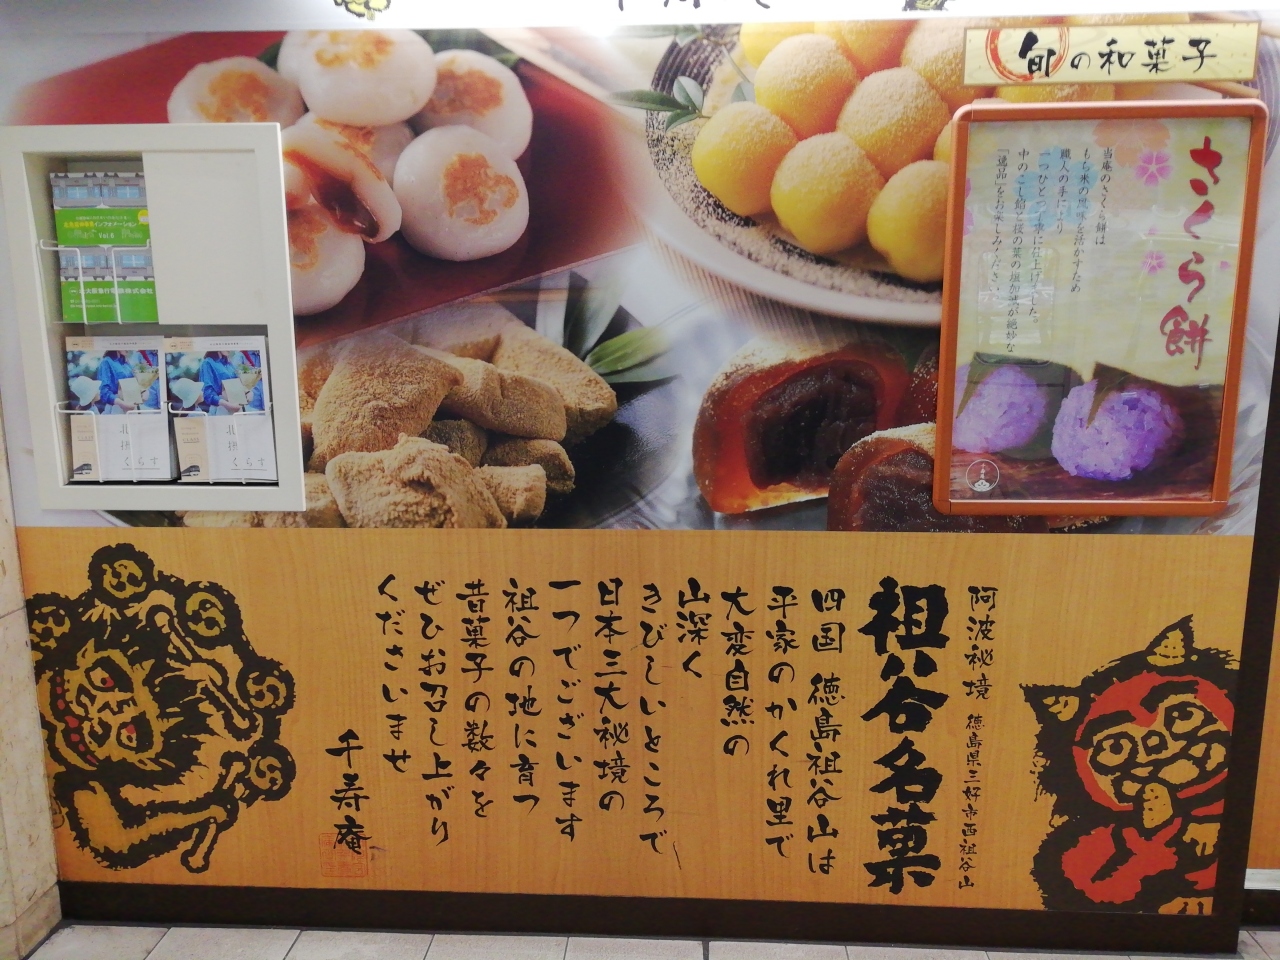 旬の和菓子
さくら餅
当庵のさくら餅は
もち米の風味を活かすため
職人の手により
一つひとつ丁寧に仕上げました。
中のこし餡と桜の葉の塩加減が絶妙な
「逸品」をお楽しみください。
阿波秘境 徳島県三好市西祖谷山
祖谷名菓
四国 徳島祖谷山は
平家のかくれ里で
大変自然の
山深く
きびしいところで
日本三大秘境の
一つでございます
祖谷の地に育つ
昔菓子の数々を
ぜひお召し上がり
くださいませ
千寿庵
インフォメーション
Vol.8
北大阪急行電鉄株式会社
北摂
くらす
北摂
くらす